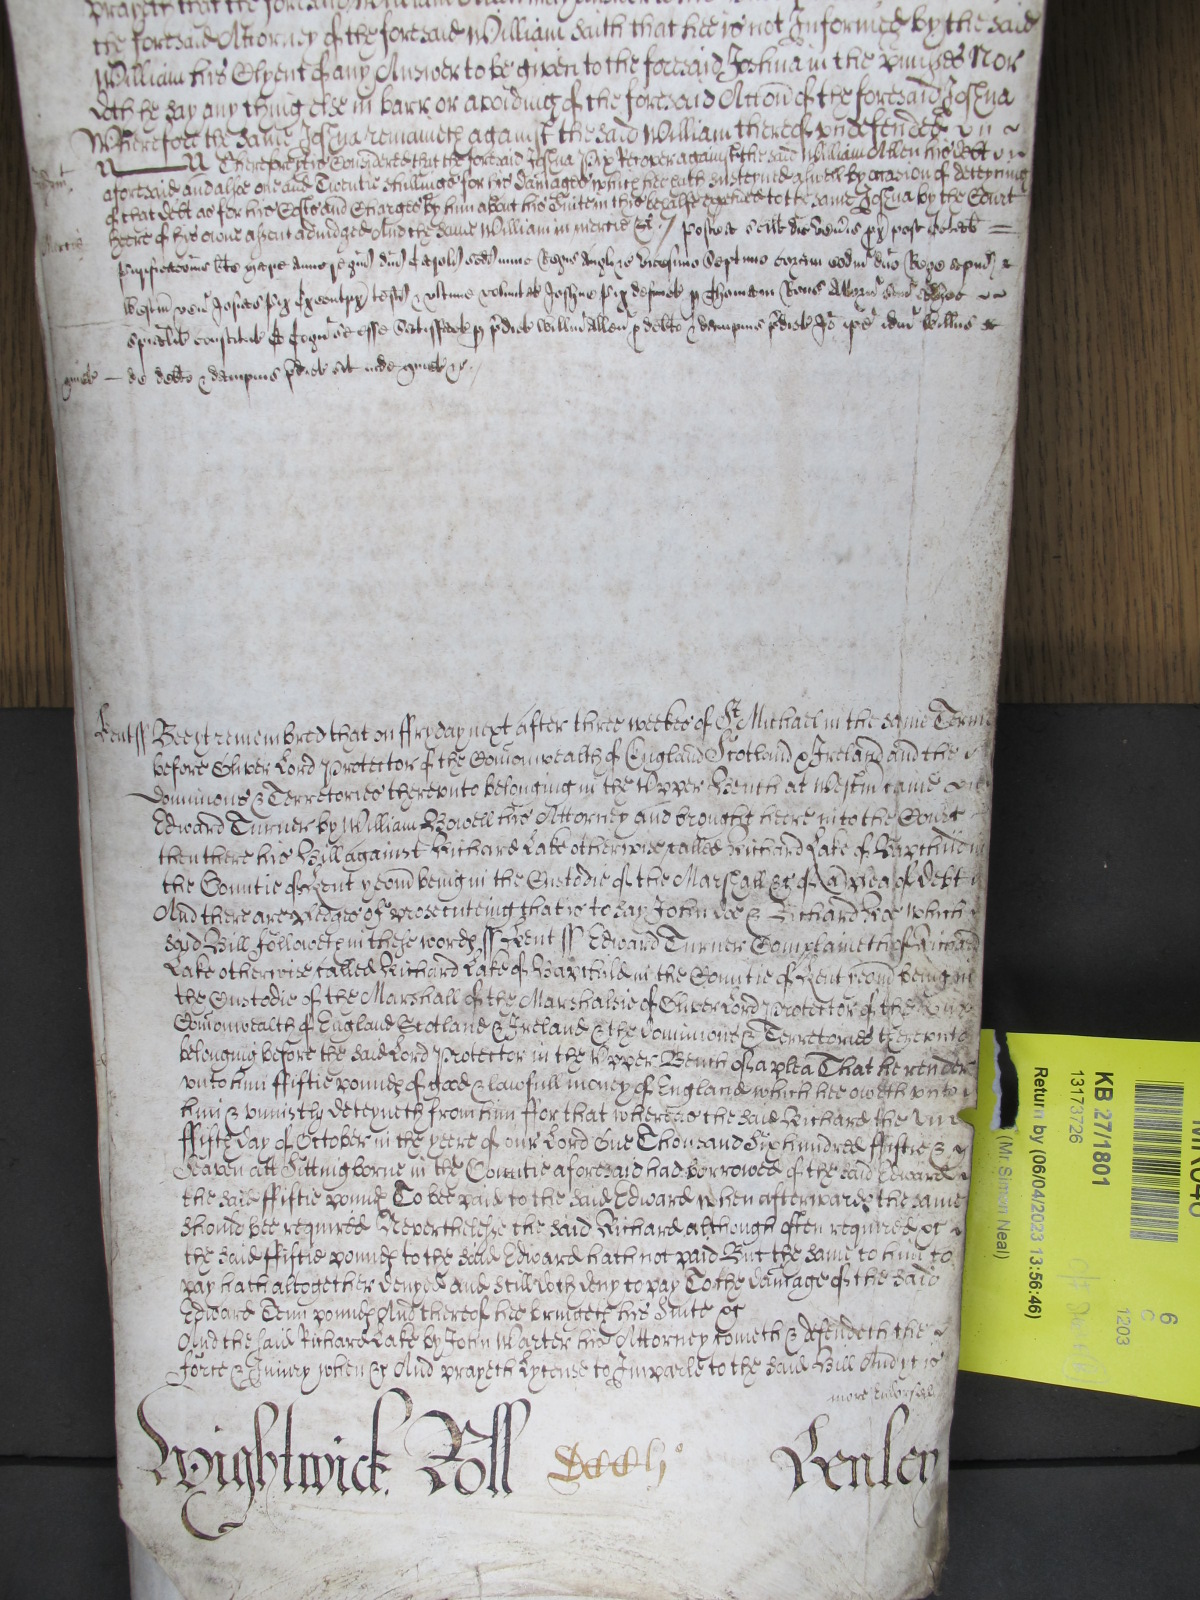 the foresaid Attorney of the foresaid William saith that hee is not Informed by the said
William his Clyent of any Answer to be given to the foresaid Joshua in the premises Nor
doth he say any thing else in barr or avoiding of the foresaid Accon of the foresaid Joshua
Wherefore the same Joshua remaineth against the said William thereof undefended
Therefore it is Considered that the foresaid Joshua Pix Recover against the said William Allen his debt
aforesaid and alsoe one and Twentie shillings for his damages which hee hath susteyned aswell by occasion of deteyning
of that debt as for his Costs and Charges by him about his Suite in this behalfe expended to the same Joshua by the Court
heere of his owne assent adiudged And the same William in mercie &c // Postea scilt die ven'is px' post
Purificacionis bte Marie anno regni dni Caroli scdi nunc Regis Anglie vicesimo septimo coram eodm dno Rege apud
Westm ven' Pix testi & ultime voluntat Joshue Pix defunct p Thomam Attorn suu
spialit constitut Et cogn se esse satisfact p pdict Willm Allen de debto & dampnis pdict Io ipe idm Willus
quiet — de debto & dampnis pdict sit inde quiet &c /
Kent ss Bee it remembred that on ffryday next after three weekes of St Michael in the same Terme
before Oliver Lord Protector of the Comonwealth of England Scotland & Ireland and the
Dominions & Territories thereunto belonging in the Upper Bench at Westm came
Edward Turner by William Rowell his Attorney and brought heere into the Court
then there his Bill against Richard Lake otherwise called Richard Lake of Bapchild in
the Countie of Kent yeom being in the Custodie of the Marshall &c of a plea of debt
And there are pledges of prosecuteing that is to say John Doe & Richard Roe which
said Bill followeth in these words ss Kent ss Edward Turner Complaineth of Richard
Lake otherwise called Richard Lake of Bapchild in the Countie of Kent yeom being in
the Custodie of the Marshall of the Marshalsie of Oliver Lord Protector of the
Comonwealth of England Scotland & Ireland & the Dominions & Territories thereunto
belonging before the said Lord Protector in the Upper Bench of a plea That he render
unto him ffiftie pounds of good & lawfull money of England which hee oweth unto
him & uniustly deteyneth from him ffor that whereas the said Richard the
ffifth day of October in the yeere of our Lord One Thousand Six hundred ffiftie &
Seaven att Sittingborne in the Countie aforesaid had borrowed of the said Edward
the said ffiftie pounds To bee paid to the said Edward when afterwards the same
should bee required Neverthelesse the said Richard although often required &c
the said ffiftie pounds to the said Edward hath not paid But the same to him to
pay hath altogether denyed and still doth deny to pay To the damage of the said
Edward Tenn pounds And thereof hee bringeth his Suite &c
And the said Richard Lake by John Warter his Attorney cometh & defendeth the
force & Iniury when &c And prayeth Lycense to Imparle to the said Bill And it is
more Endorsed
Wightwick Roll
Henley
KB 27/1801
13173726
Return by (06/04/2023 13:56:46)
(Mr Simon Neal)
6
C
1203